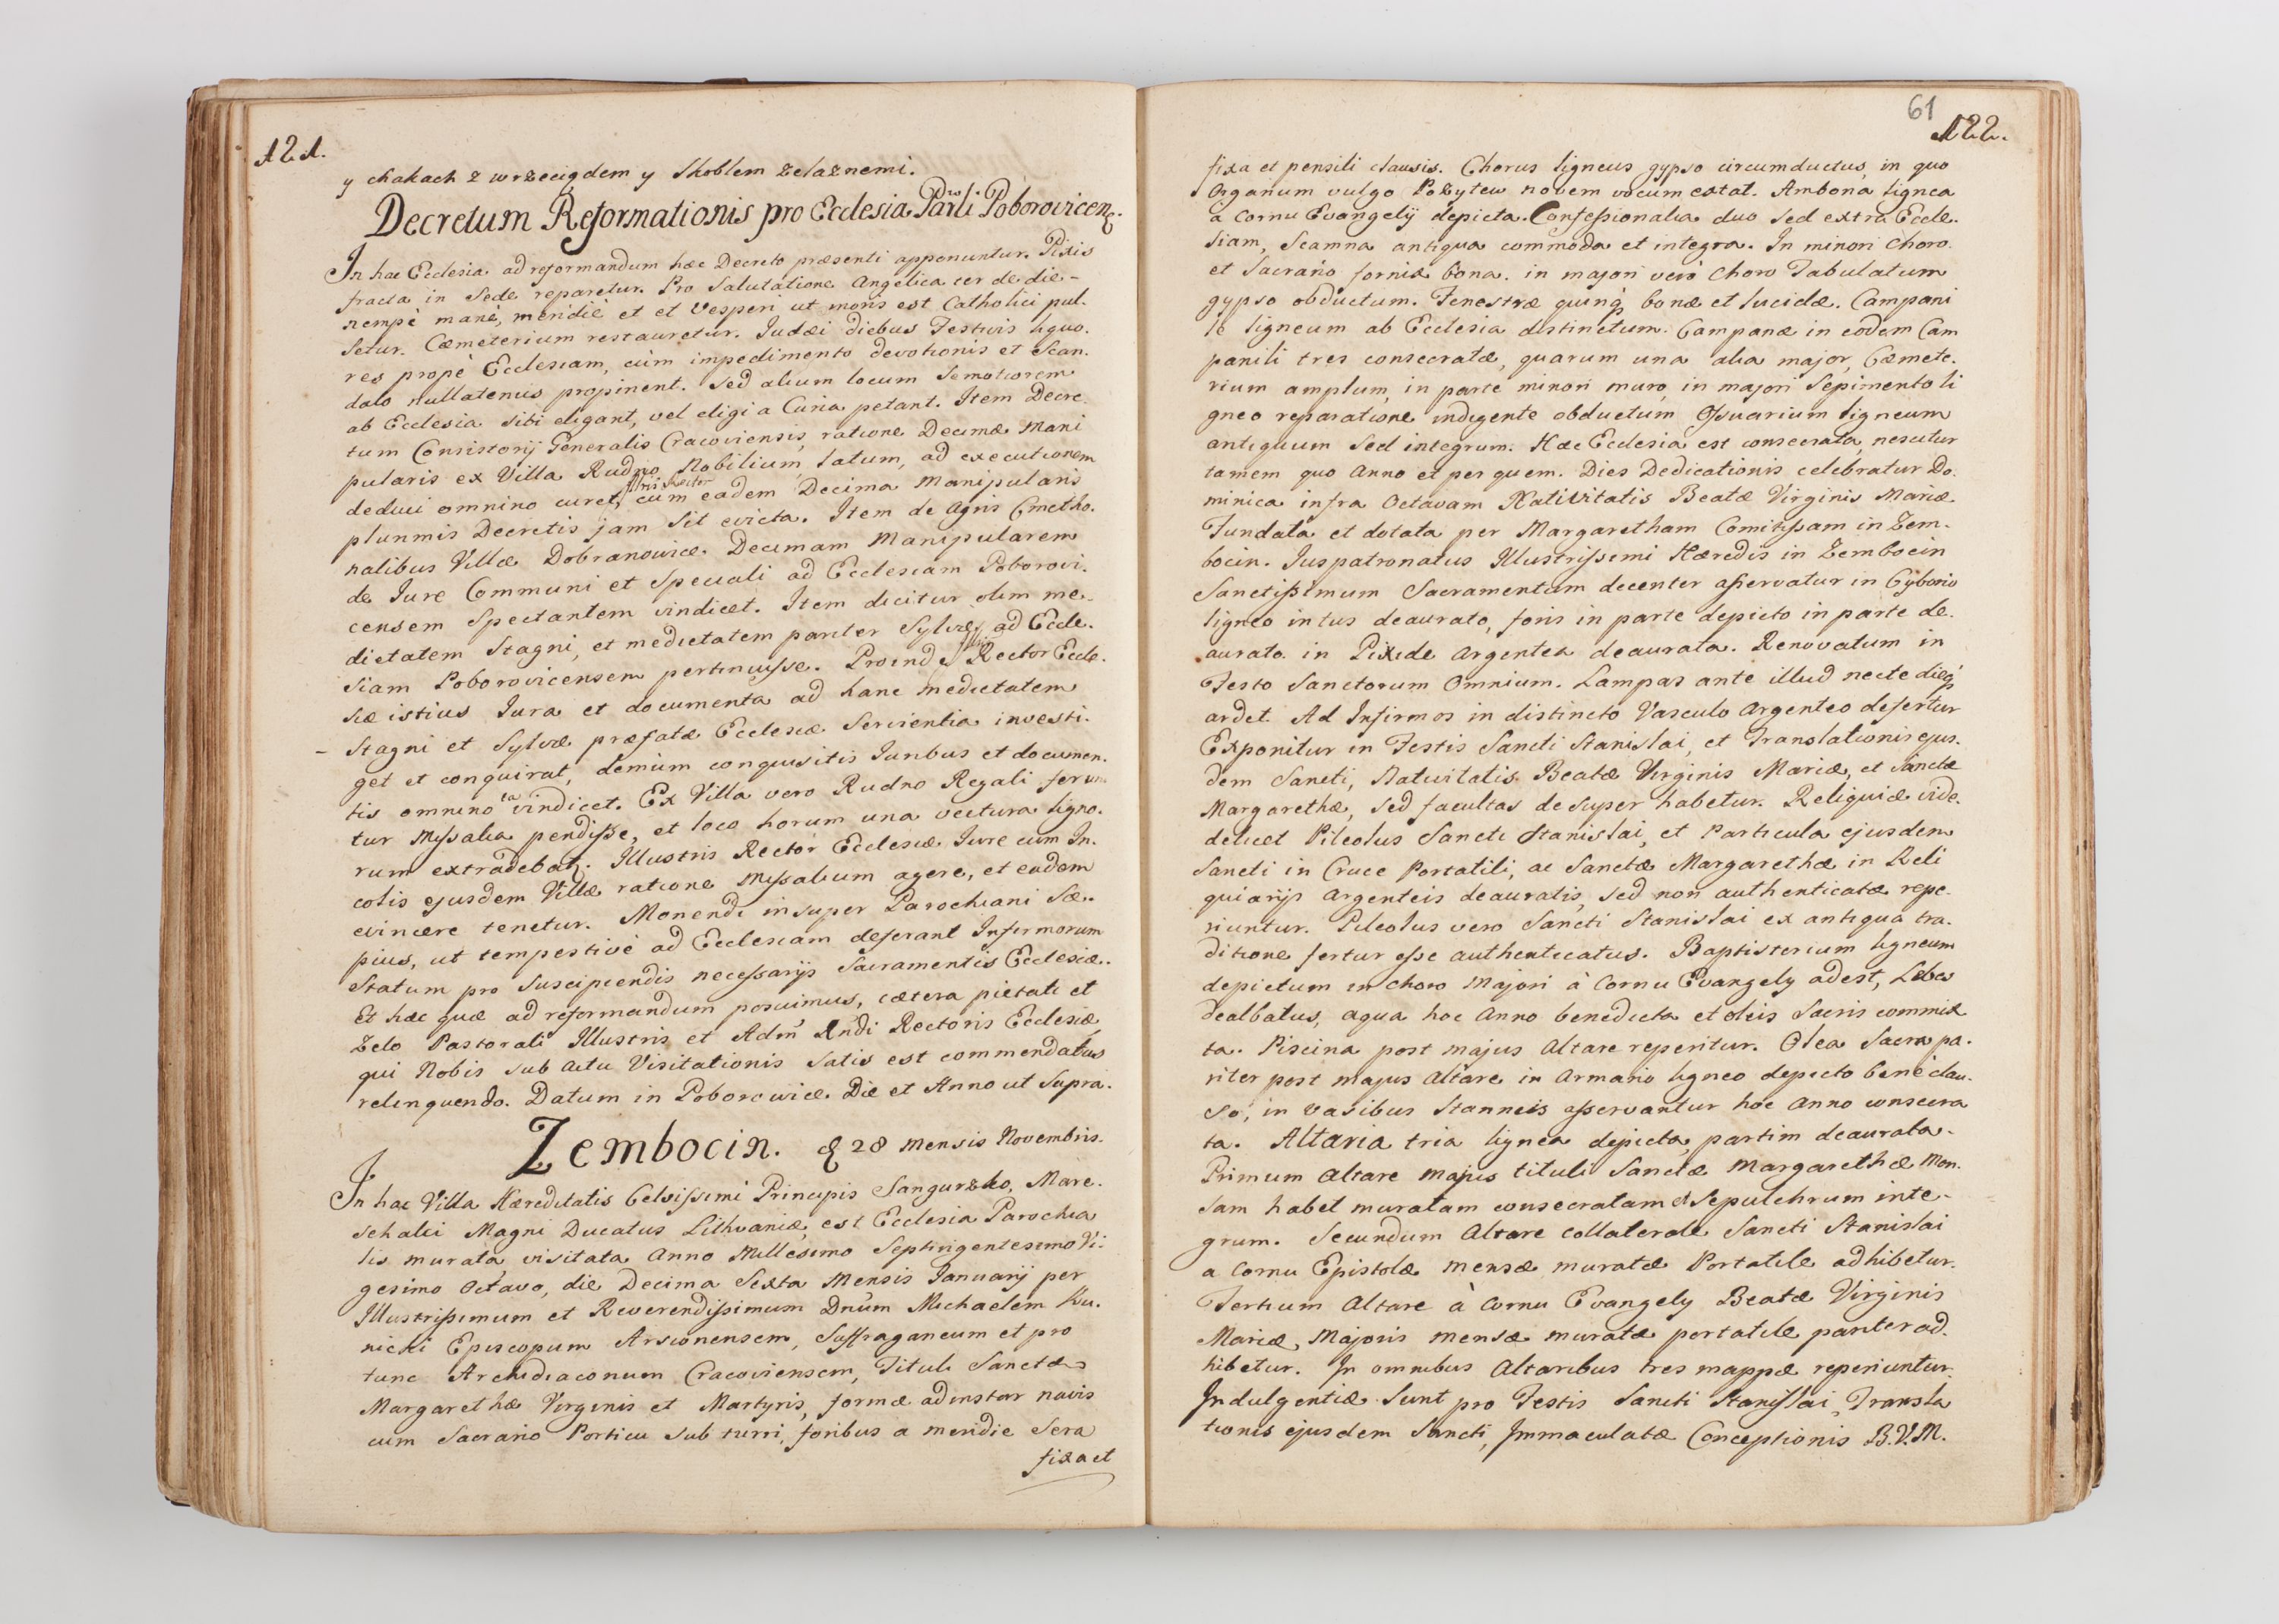 121.
y chakach z wrzeciądem y skoblem żelaznemi.
Decretum Reformationis pro Ecclesia Parli Poborovicen.
In hac Ecclesia ad reformandum hæc Decreto præsenti apponuntur. Pixis
fracta in Sede reparetur. Pro Salutatione Angelica ter de die -
nempè manè, meridiè et et Vesperi ut moris est Catholici pul-
setur. Cæmeterium restauretur. Judæi diebus Festivis liquo-
res propè Ecclesiam, cùm impedimento devotionis et Scan-
dalo nullatenus propinent. Sed alium locum Semotiorem
ab Ecclesia sibi eligant, vel eligi a Curia petant. Item Decre-
tum Consistorij Generalis Cracoviensis, ratione Decimæ Mani
pularis ex Villa Rudno Nobilium latum, ad executionem
deduci omnino curet Illris Rector, cùm eadem Decima Manipularis
plurimis Decretis jam sit evicta. Item de Agris Cmetho-
nalibus Villæ Dobranowice Decimam Manipularem
de Jure Communi et Speciali ad Ecclesiam Poborovi-
censem Spectantem vindicet. Item dicitur olim me-
dietatem Stagni, et medietatem pariter Sylvæ, ad Eccle-
siam Poborovicensem pertinuisse. Proinde Illris Rector Eccle-
siæ istius Jura et documenta ad hanc medietatem
- Stagni et Sylvæ præfatæ Ecclesiæ Servientia investi-
get et conquirat, demùm conquisitis Juribus et documen-
tis omnino ea vindicet. Ex Villa vero Rudno Regali ferun-
tur Missalia pendisse, et loco horum una vectura ligno-
rum extradebatq. Illustris Rector Ecclesiæ Jure cum In-
colis ejusdem Villæ ratione Missalium agere, et eadem
evincere tenetur. Monendi insuper Parochiani Sæ-
pius, ut tempestivè ad Ecclesiam deferant Infirmorum
Statum pro Suscipiendis necessarijs Sacramentis Ecclesiæ.
Et hæc quæ ad reformandum posuimus, cætera pietati et
Zelo Pastorali Illustris et Adm̃ Rndi Rectoris Ecclesiæ
qui Nobis sub actu Visitationis Satis est commendatus
relinquendo. Datum in Poborowice Die et Anno ut Supra.
Zembocin. 28 Mensis Novembris.
In hac Villa Hæreditatis Celsissimi Principis Sanguszko, Mare-
schalci Magni Ducatus Lithvaniæ, est Ecclesia Parochia
lis murata, visitata Anno Millesimo Septingentesimo Vi-
gesimo Octavo, die Decima Sexta Mensis Januarij per
Illustrissimum et Reverendissimum Dnum Michaelem Ku-
nicki Episcopum Arsionensem, Suffraganeum et pro
tunc Archidiaconum Cracoviensem, Tituli Sanctæ
Margarethæ Virginis et Martyris, formæ ad instar navis
cum Sacrario Porticu sub turri, foribus a meridie Sera
fixa et
61
122.
fixa et pensili clausis. Chorus ligneus gypso circumductus, in quo
Organum vulgo Pozytew novem vocum extat. Ambona lignea
à Cornu Evangelij depicta. Confessionalia duo sed extra Eccle-
siam, Scamna antiqua commoda et integra. In minori Choro
et Sacrario fornix bona. in majori verò Choro Tabulatum
gypso obductum. Fenestræ quinq bonæ et lucidæ. Campani
le ligneum ab Ecclesia distinctum. Campanæ in eodem Cam
panili tres consecratæ, quarum una alia major, Cæmete-
rium amplum, in parte minori muro, in majori Sepimento li
gneo reparatione indigente obductum Ossuarium ligneum
antiquum sed integrum. Hæc Ecclesia est consecrata, nescitur
tamem quo Anno et per quem. Dies Dedicationis celebratur Do-
minica infra Octavam Nativitatis Beatæ Virginis Mariæ.
Fundata et dotata per Margaretham Comitissam in Zem-
bocin. Juspatronatus Illustrissimi Hæredis in Zembocin
Sanctissimum Sacramentum decenter asservatur in Cyborio
ligneo intus deaurato, foris in parte depicto in parte de-
aurato. in Pixide Argentea deaurata. Renovatum in
Festo Sanctorum Omnium. Lampas ante illud nocte dieq
ardet. Ad Infirmos in distincto Vasculo Argenteo defertur
Exponitur in Festis Sancti Stanislai, et Translationis ejus-
dem Sancti, Nativitatis Beatæ Virginis Mariæ, et Sanctæ
Margarethæ, sed facultas desuper habetur. Reliquiæ vide-
delicet Pileolus Sancti Stanislai, et Particula ejusdem
Sancti in Cruce Portatili, ac Sanctæ Margarethæ in Reli
quiarijs Argenteis deauratis, sed non authenticatæ repe-
riuntur. Pileolus vero Sancti Stanislai ex antiqua tra-
ditione fertur esse authenticatus. Baptisterium ligneum
depictum in Choro Majori à Cornu Evangely adest, Lebes
dealbatus, aqua hoc Anno benedicta et oleis Sacris commix
ta. Piscina post majus Altare reperitur. Olea Sacra pa-
riter post majus Altare in Armario ligneo depicto benè clau-
so, in vasibus Stanneis asservantur hoc Anno consecra
ta. Altaria tria lignea depicta, partim deaurata.
Primum Altare Majus tituli Sanctæ Margarethæ Men-
sam habet muratam consecratam et Sepulchrum inte-
grum. Secundum Altare collaterale Sancti Stanislai
a Cornu Epistolæ mensæ muratæ Portatile adhibetur.
Tertium Altare à Cornu Evangely Beatæ Virginis
Mariæ, Majoris mensæ muratæ portatile pariter ad-
hibetur. In omnibus Altaribus tres mappæ reperiuntur.
Indulgentiæ Sunt pro Festis Sancti Stanislai, Transla
tionis ejusdem Sancti, Immaculatæ Conceptionis B.V.M.